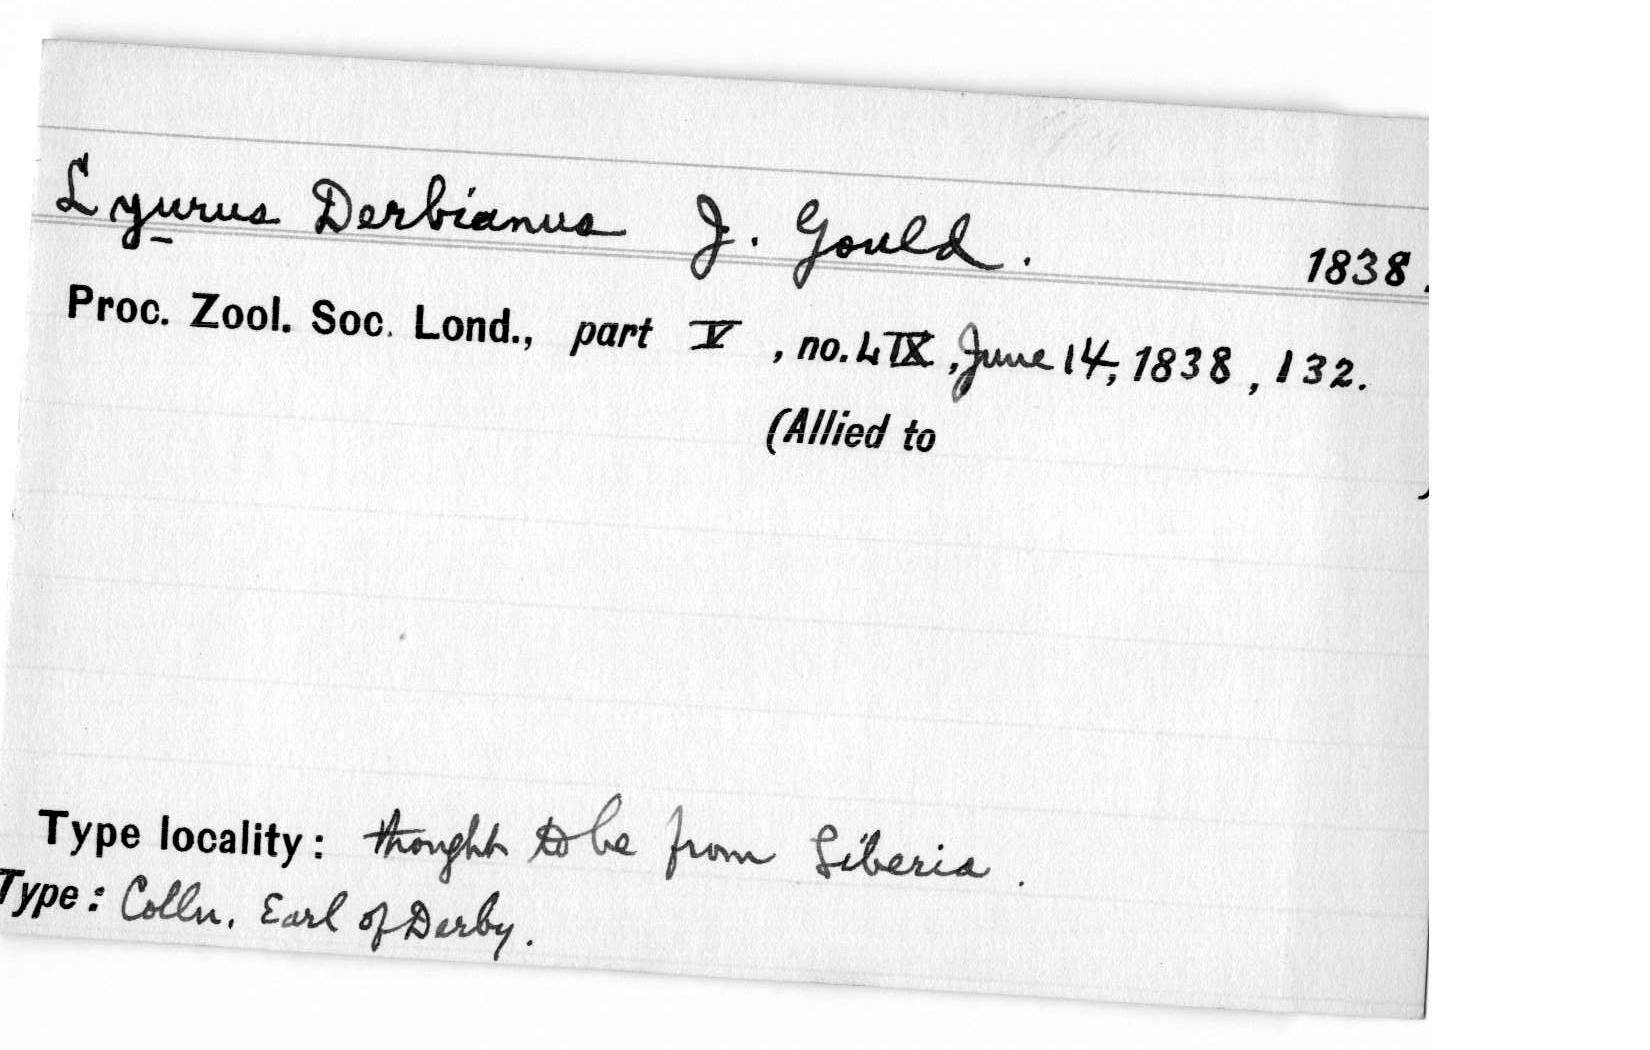 Lyurus Derbianus J. Gould. 1838.
Proc. Zool. Soc. Lond., part V, no. LIX, June 14, 1838, 132.
(Allied to
)
Type locality: thought to be from Siberia.
Type: Colln. Earl of Derby.